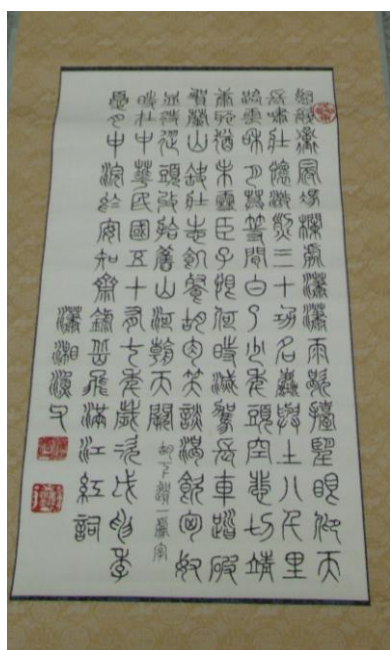 怒髮衝冠憑欄處瀟瀟雨歇擡望眼仰天
長嘯壯懷激烈三十功名塵與土八千里
路雲和月莫等閒白了少年頭空悲切靖
康恥猶未雪臣子恨何時滅駕長車踏破
賀蘭山缺壯志飢餐胡肉笑談渴飲匈奴
血待從頭收拾舊山河朝天闕 胡下一虜字
中華民國五十有七年歲次戊申季
夏月中浣於安知齋錄岳飛滿江紅詞
瀟湘漁父